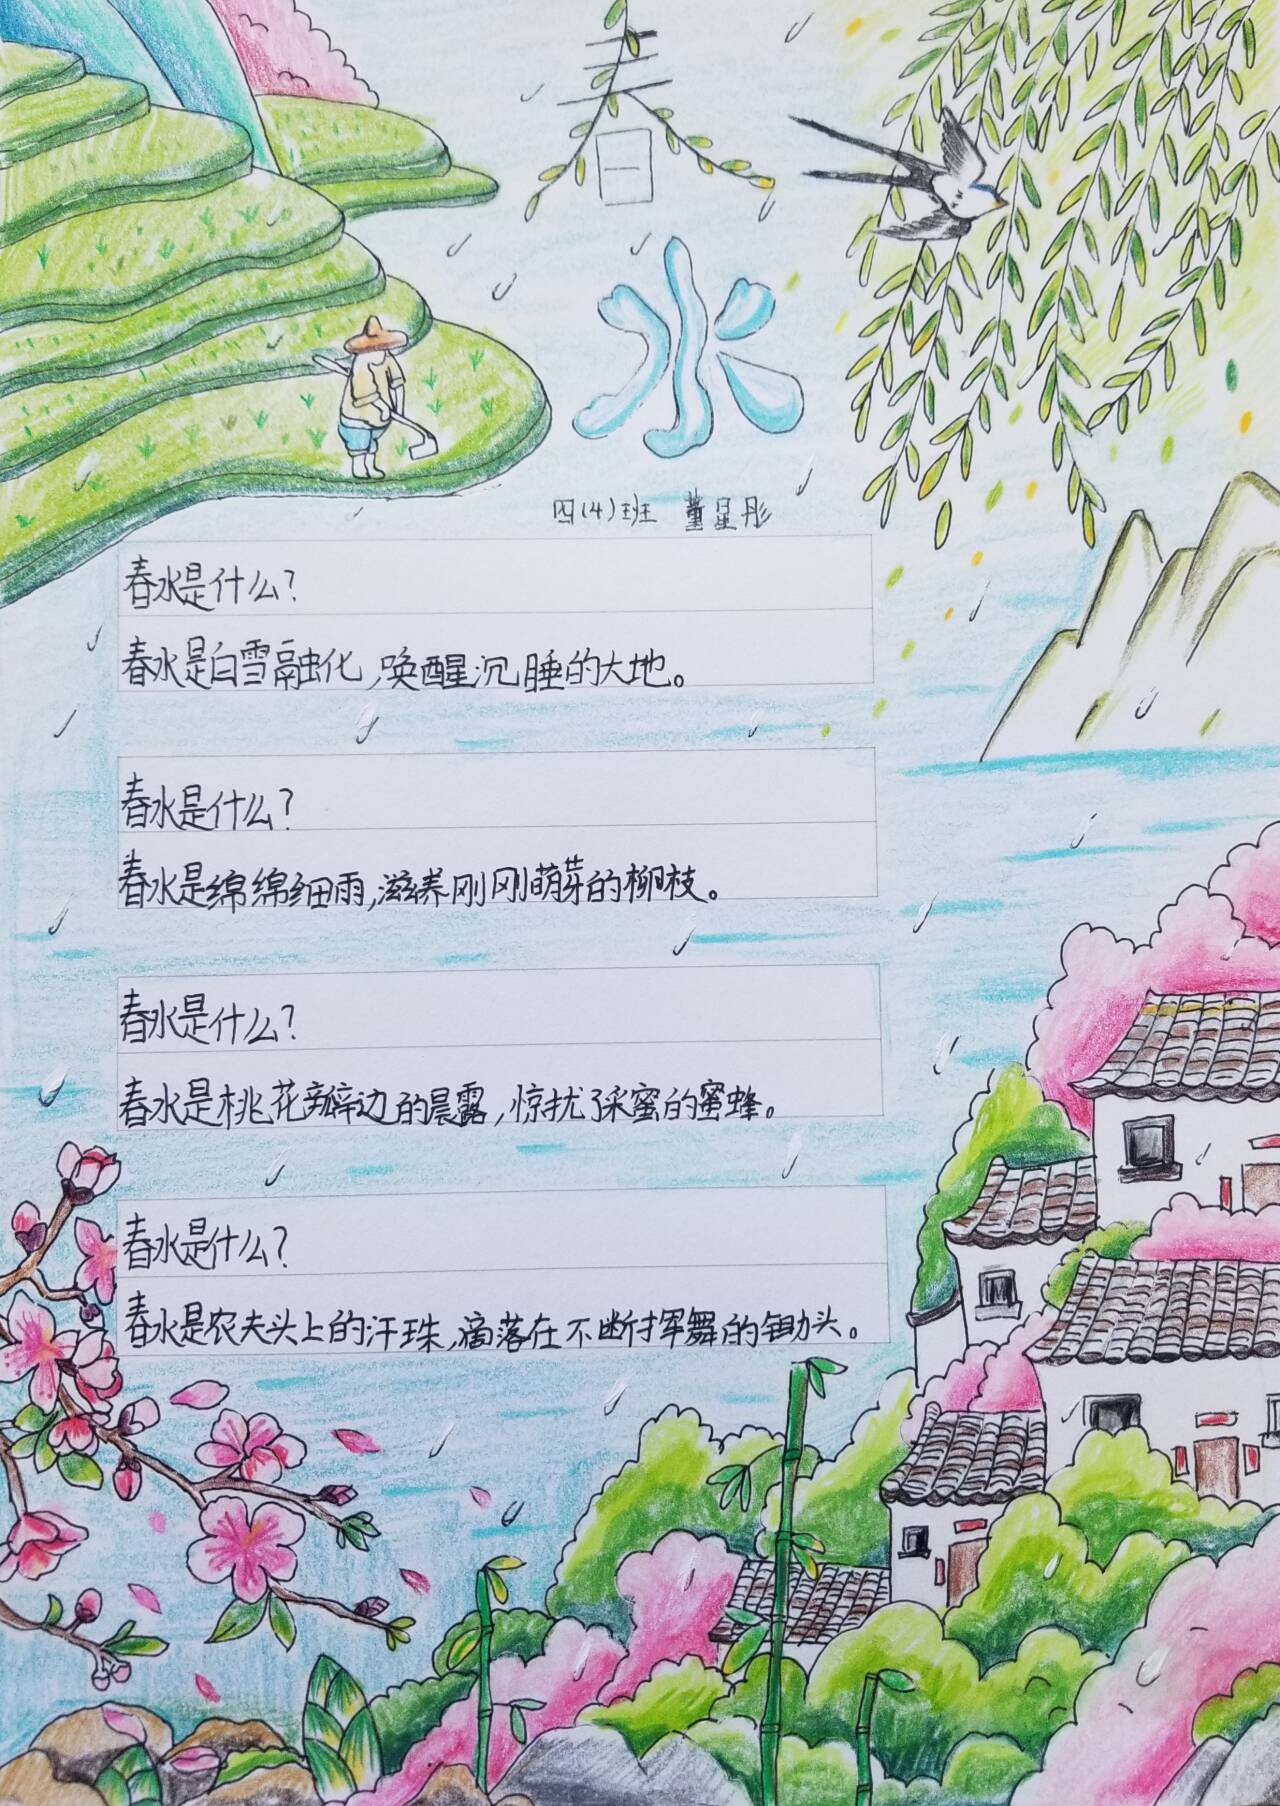 春
水
四(4)班 董星彤
春水是什么?
春水是白雪融化,唤醒沉睡的大地。
春水是什么?
春水是绵绵细雨,滋养刚刚萌芽的柳枝。
春水是什么?
春水是桃花瓣边的晨露,惊扰了采蜜的蜜蜂。
春水是什么?
春水是农夫头上的汗珠,滴落在不断挥舞的锄头。